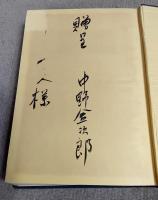 贈呈
中野金次郎
一人様